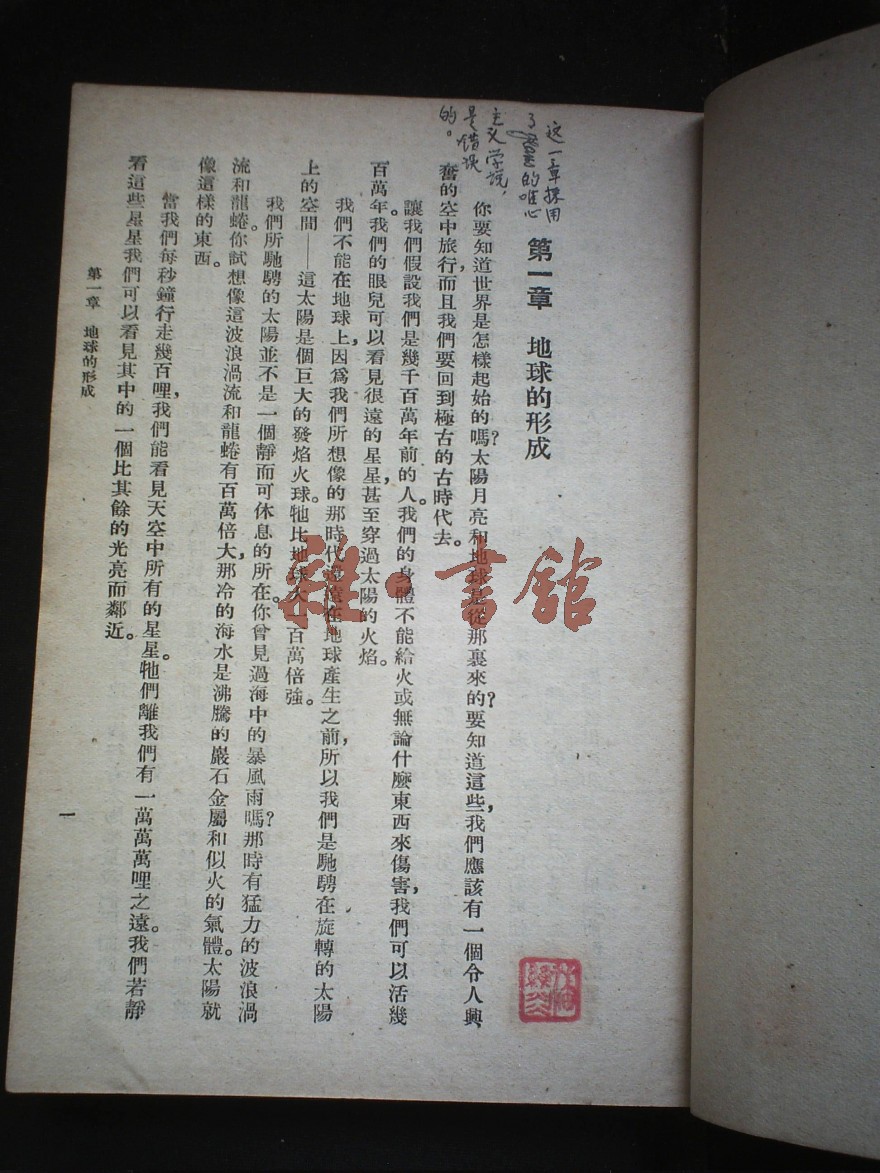 这一章採用
了的唯心
主义学說，
是错误
的。
第一章　地球的形成
你要知道世界是怎樣起始的嗎？太陽月亮和地球是從那裏來的？要知道這些，我們應該有一個令人興
奮的空中旅行，而且我們要回到極古的古時代去。
讓我們假設我們是幾千百萬年前的人。我們的身體不能給火或無論什麼東西來傷害，我們可以活幾
百萬年。我們的眼兒可以看見很遠的星星，甚至穿過太陽的火焰。
我們不能在地球上，因爲我們所想像的那時代遠在地球產生之前，所以我們是馳騁在旋轉的太陽
上的空間——這太陽是個巨大的發焰火球。牠比地球大一百萬倍強。
我們所馳騁的太陽並不是一個靜而可休息的所在。你曾見過海中的暴風雨嗎？那時有猛力的波浪渦
流和龍蜷。你試想像這波浪渦流和龍蜷有百萬倍大，那冷的海水是沸騰的巖石金屬和似火的氣體。太陽就
像這樣的東西。
當我們每秒鐘行走幾百哩，我們能看見天空中所有的星星。牠們離我們有一萬萬萬哩之遠。我們若靜
看這些星星我們可以看見其中的一個比其餘的光亮而鄰近。
第一章　地球的形成
一
雜·書館